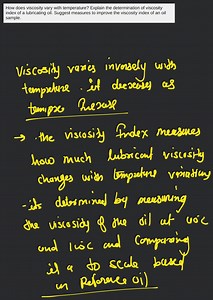 How does viscosity vary with temperature? Explain the determination of viscosity
index of a lubricating oil. Suggest measures to improve the viscosity index of an oil
sample.
viscosity varies inversely with
temprture . it decreases as
tempre Increase
→ . the viscosity Index measures
how much lubricant viscosity
changes with temprture variations
- its determined by measuring
the viscosity of the oil at 40°c
and 100°c and Comparing
it a to scale based
on Reference oil)